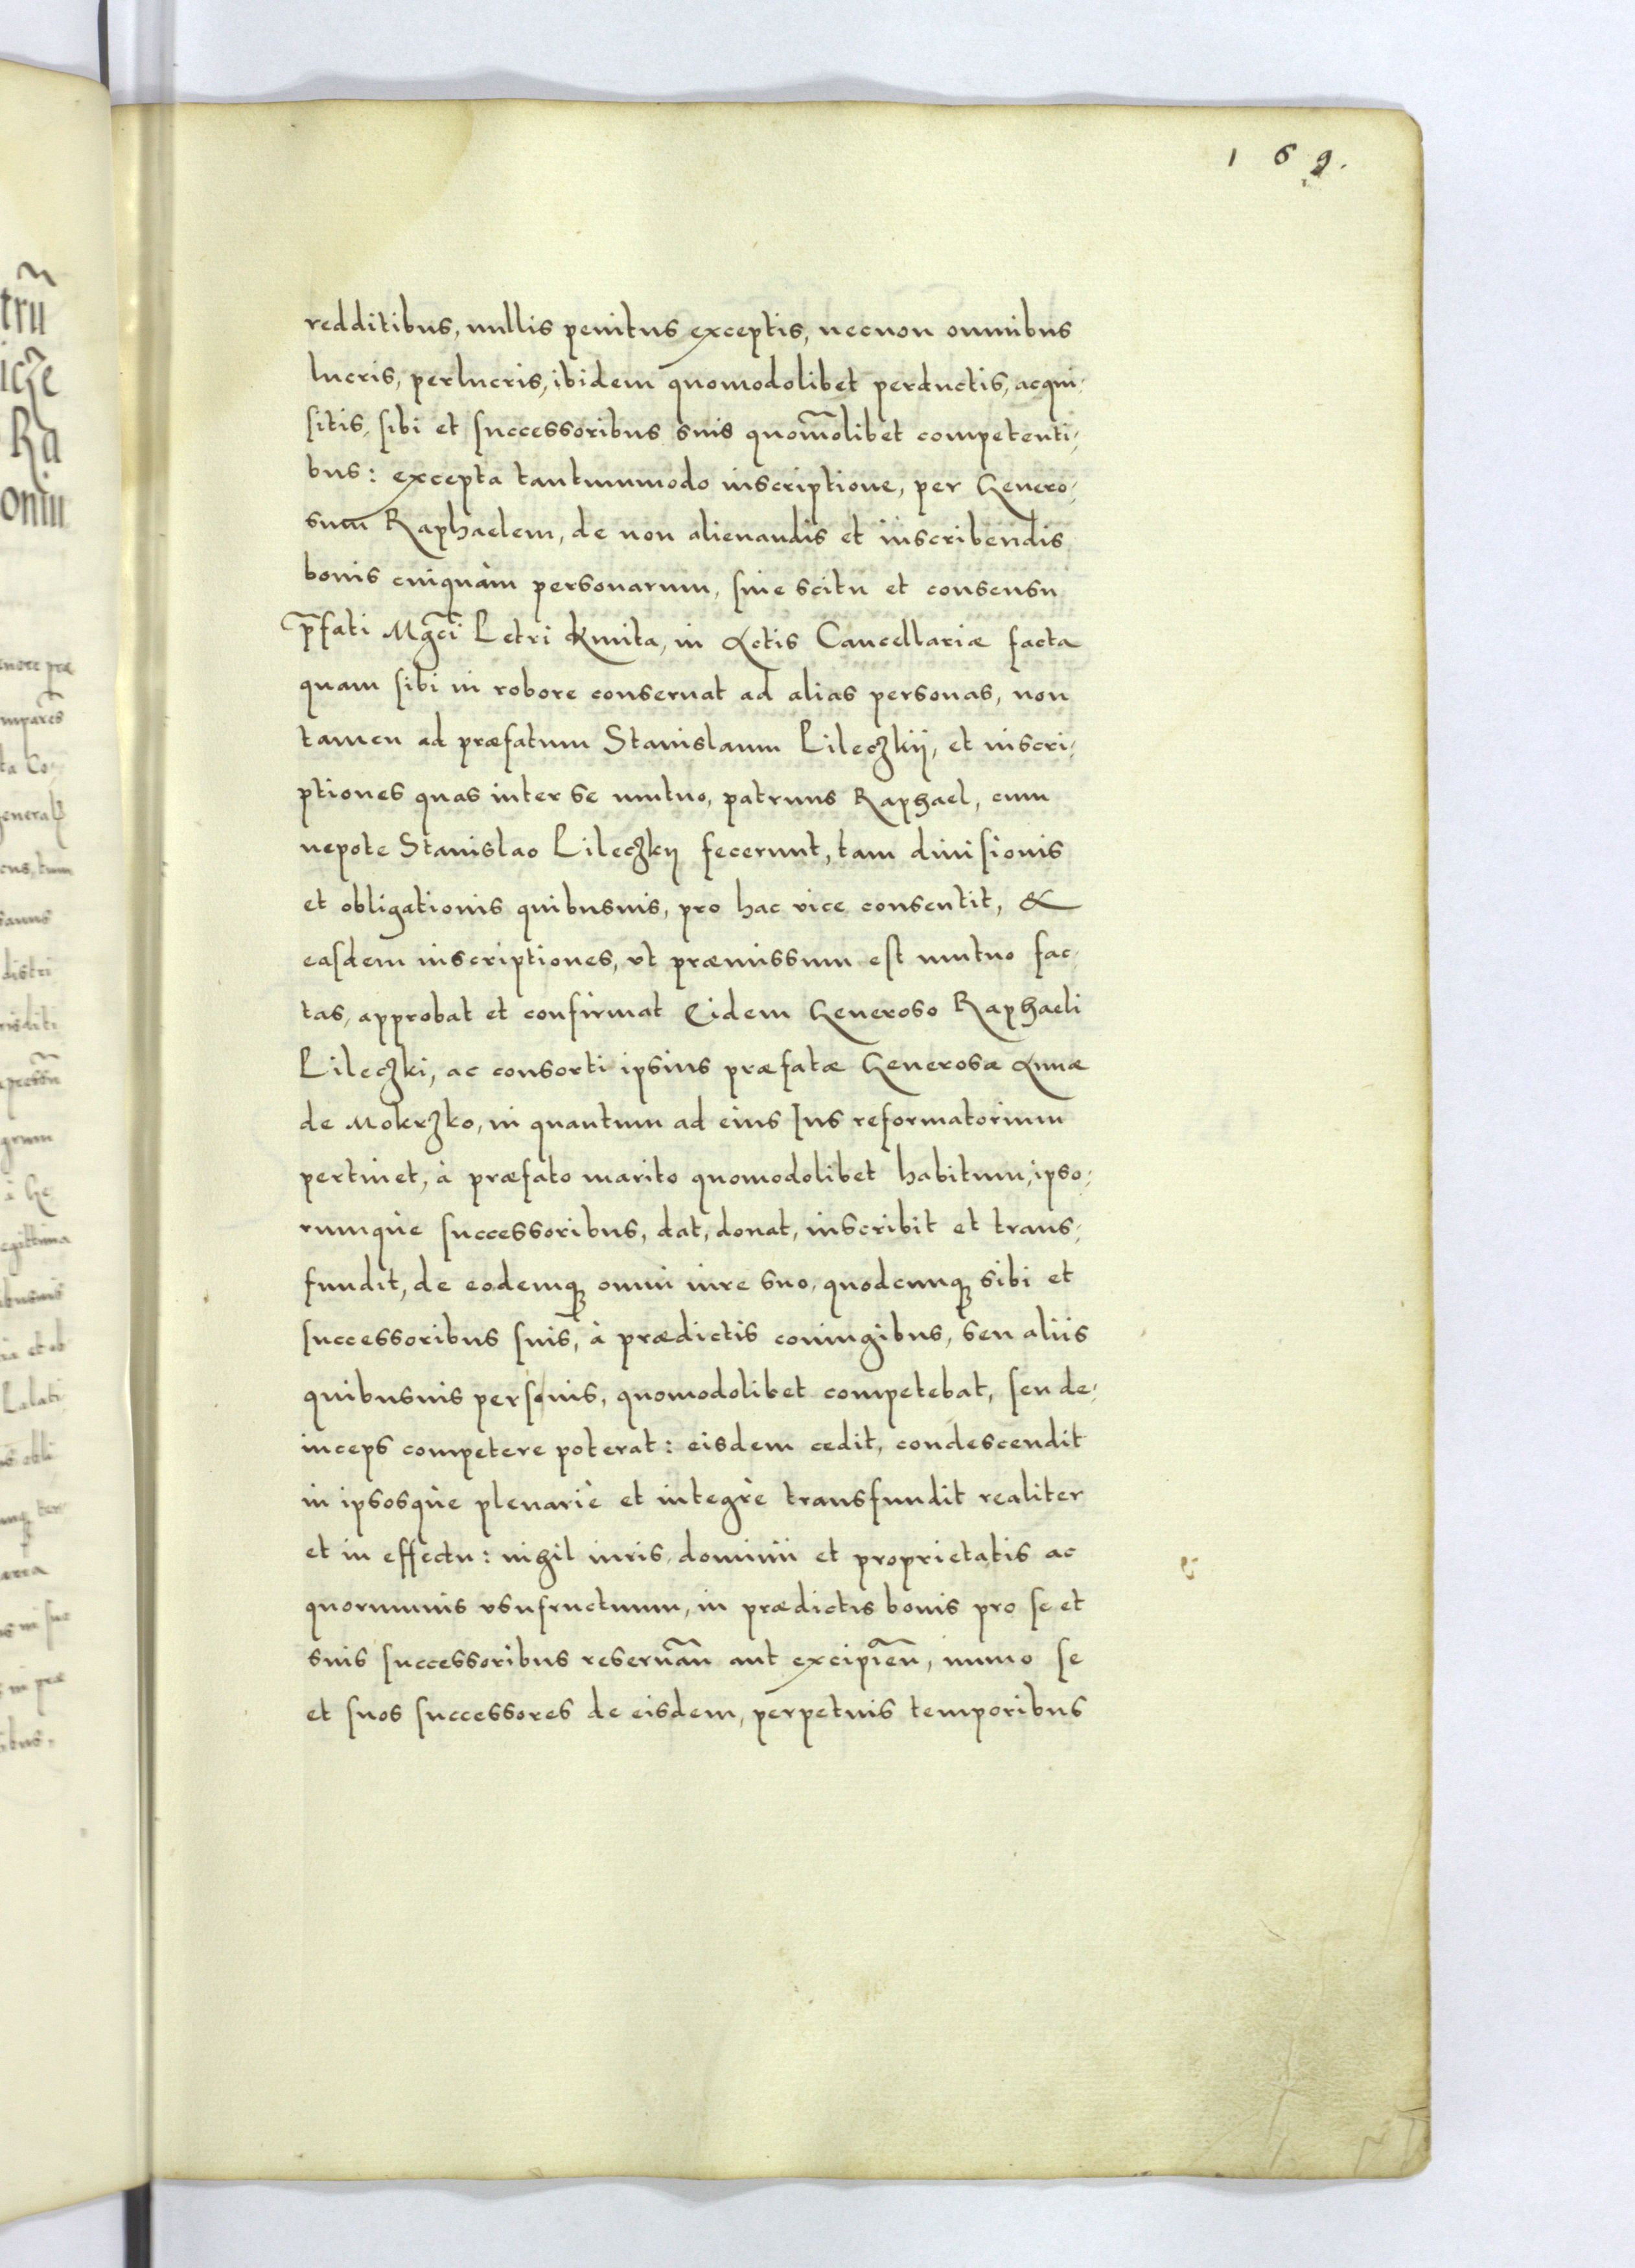 169.
redditibus, nullis penitus exceptis, necnon omnibus
lucris, perlucris, ibidem quomodolibet perductis, acqui,
sitis, sibi et successoribus suis quom̃olibet competenti,
bus: excepta tantummodo inscriptione, per Genero,
sum Raphaelem, de non alienandis et inscribendis
bonis cuiquàm personarum, sine scitu et consensu
p̃fati Mgc̃i Petri Kmita, in Actis Cancellariæ facta
quam sibi in robore conseruat ad alias personas, non
tamen ad præfatum Stanislaum Pileczkij, et inscri,
ptiones quas inter se mutuo, patruus Raphael, cum
nepote Stanislao Pileczky fecerunt, tam diuisionis
et obligationis quibusuis, pro hac vice consentit, &
easdem inscriptiones, vt præmissum est mutuo fac,
tas, approbat et confirmat Eidem Generoso Raphaeli
Pileczki, ac consorti ipsius præfatæ Generosæ Annæ
de Mokrzko, in quantum ad eius Ius reformatorium
pertinet, à præfato marito quomodolibet habitum, ipso,
rumque successoribus, dat, donat, inscribit et trans,
fundit, de eodemq; omni iure suo, quodcunq; sibi et
successoribus suis, à prædictis coniugibus, seu aliis
quibusuis personis, quomodolibet competebat, seu de,
inceps competere poterat: eisdem cedit, condescendit
in ipsosque plenariè et integrè transfundit realiter
et in effectu: nihil iuris, dominii et proprietatis ac
quorumuis vsufructuum, in prædictis bonis pro se et
suis successoribus reseruañ aut excipieñ, immo se
et suos successores de eisdem, perpetuis temporibus